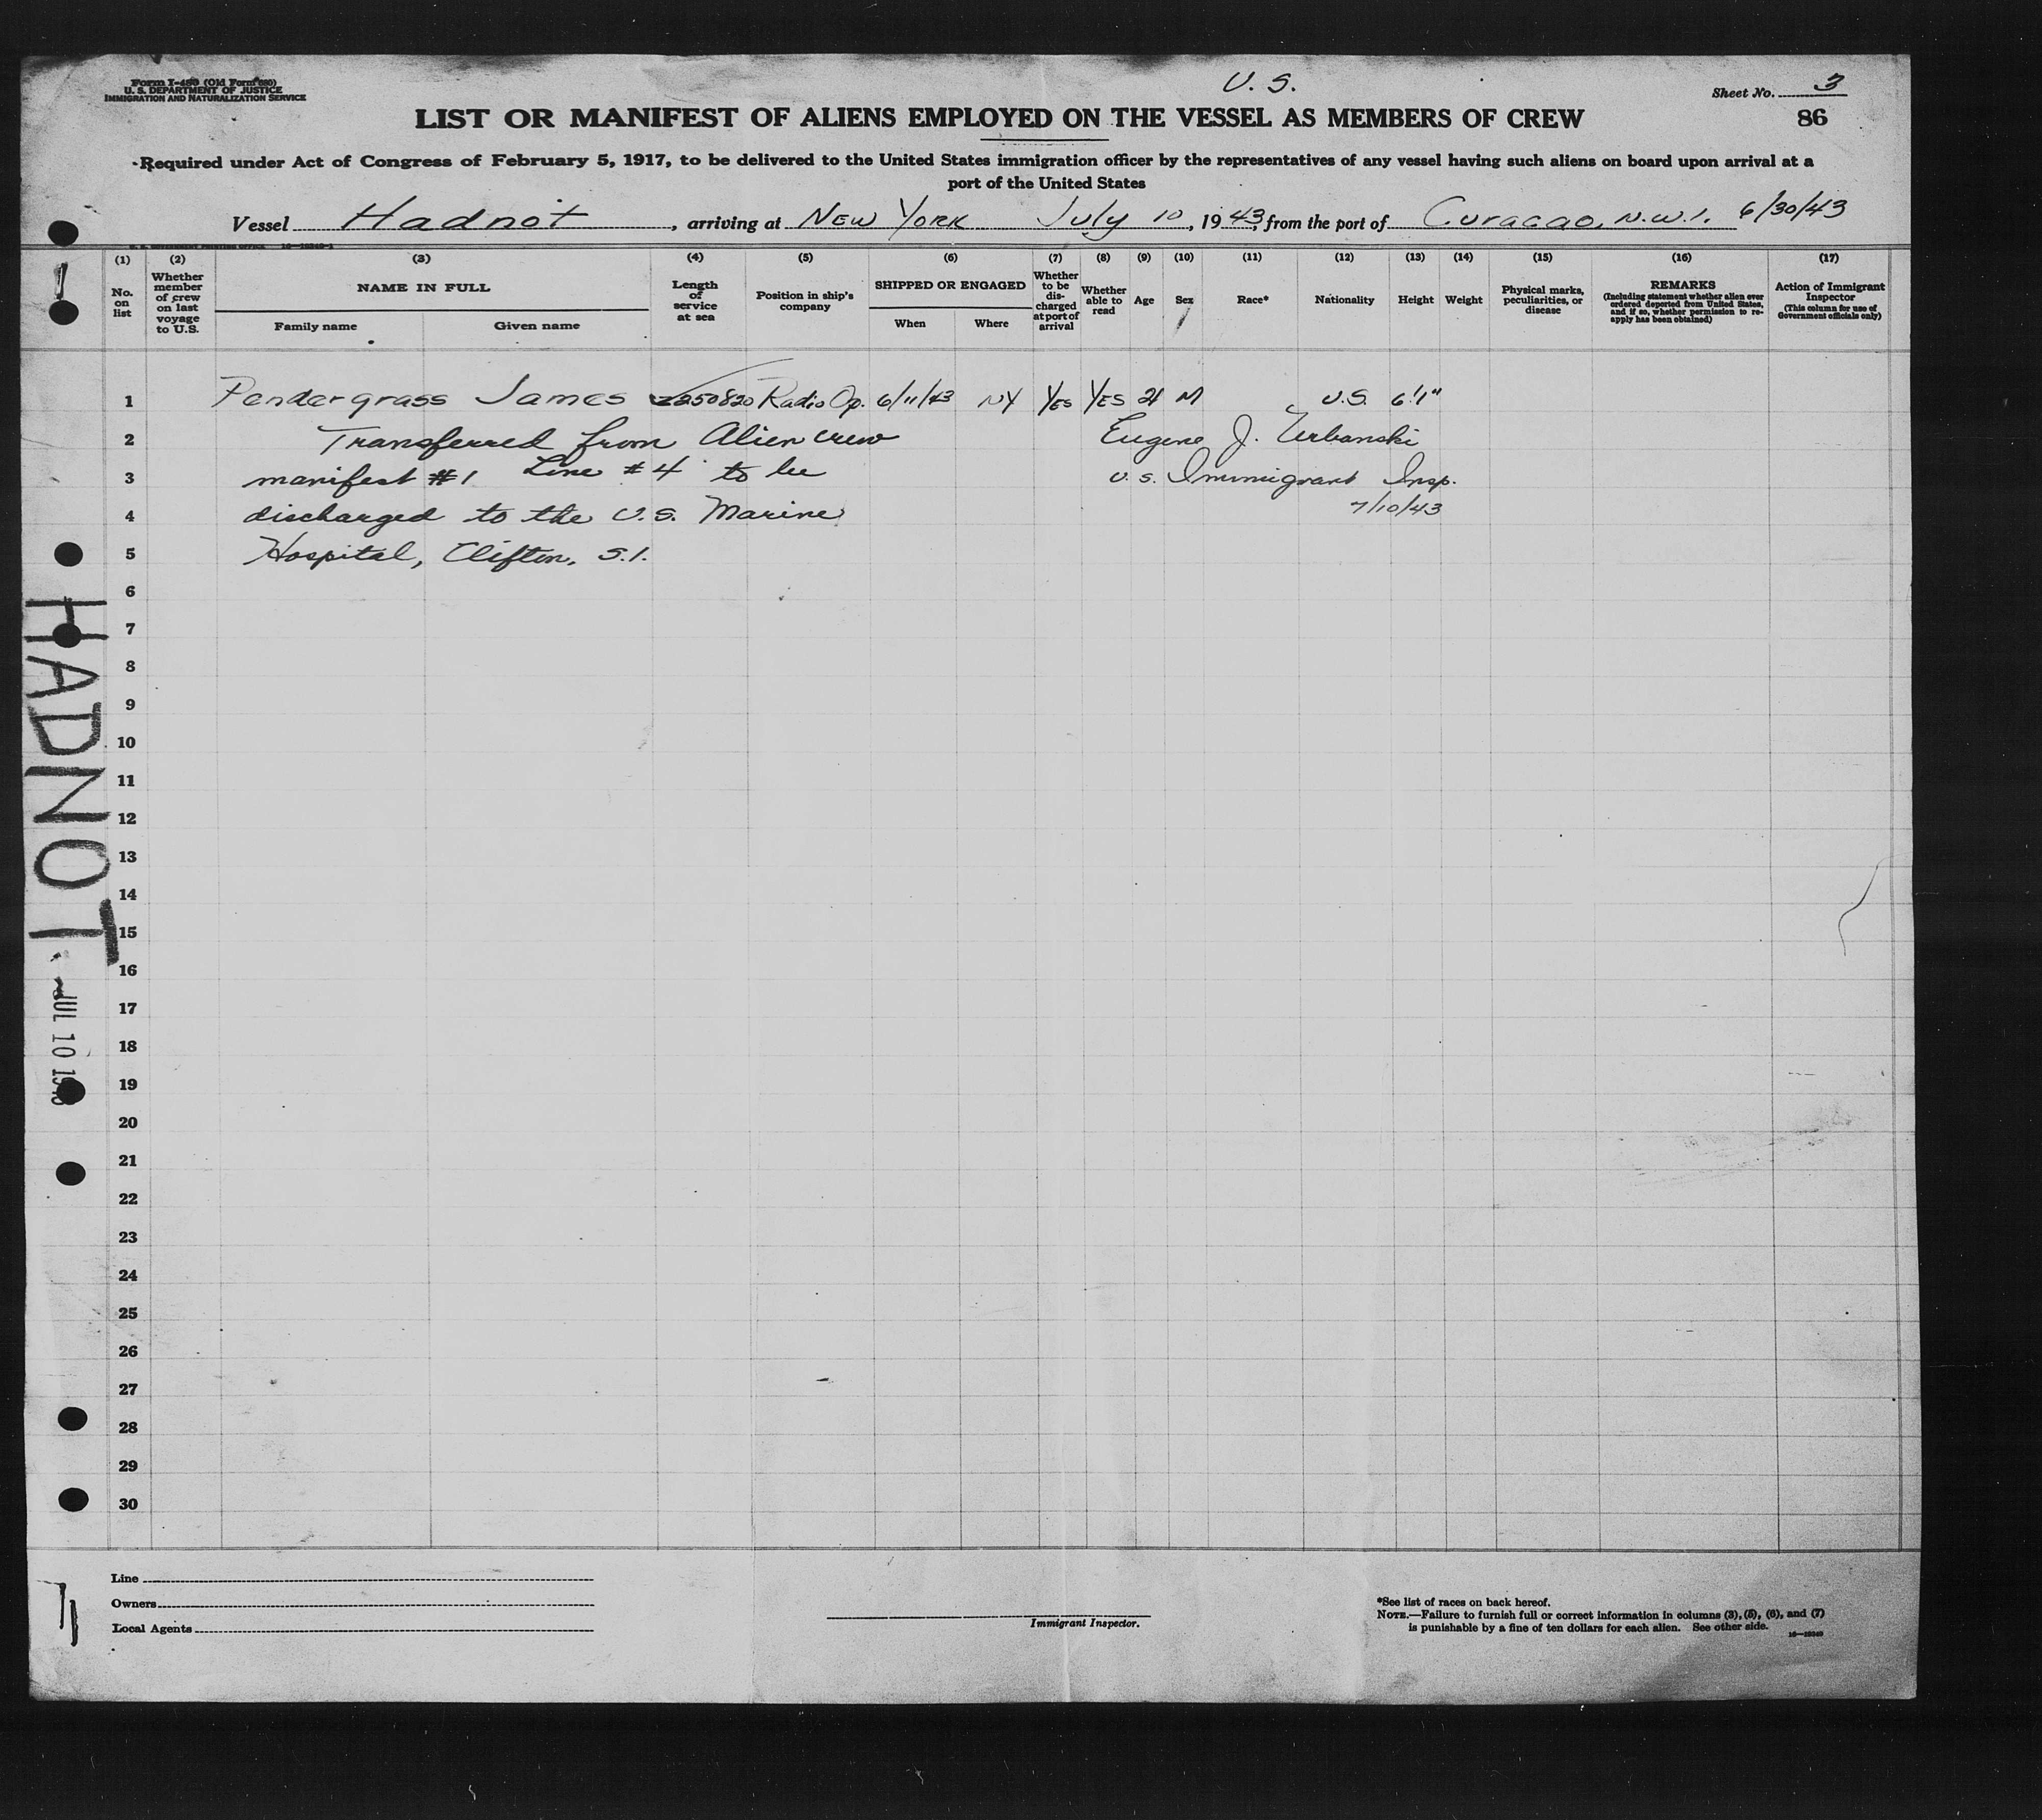 Form I-480 (Old Form 680)
U. S. DEPARTMENT OF JUSTICE
IMMIGRATION AND NATURALIZATION SERVICE
U. S.
Sheet No. 3
LIST OR MANIFEST OF ALIENS EMPLOYED ON THE VESSEL AS MEMBERS OF CREW
86
Required under Act of Congress of February 5, 1917, to be delivered to the United States immigration officer by the representatives of any vessel having such aliens on board upon arrival at a
port of the United States
Vessel Hadnot, arriving at New York July 10, 1943, from the port of Curacao, N.W.I. 6/30/43
(1) (2) (3) (4) (5) (6) (7) (8) (9) (10) (11) (12) (13) (14) (15) (16) (17)
No. on list
Whether member of crew on last voyage to U.S.
NAME IN FULL
Family name Given name
Length of service at sea
Position in ship's company
SHIPPED OR ENGAGED
When Where
Whether to be discharged at port of arrival
Whether able to read
Age
Sex
Race*
Nationality
Height
Weight
Physical marks, peculiarities, or disease
REMARKS
(Including statement whether alien ever ordered deported from United States, and if so, whether permission to re-apply has been obtained)
Action of Immigrant Inspector
(This column for use of Government officials only)
1 Pendergrass James Radio Op. 6/11/43 NY Yes Yes 21 M U.S. 6'1"
2 Transferred from Alien crew Eugene J. Urbanski
3 manifest #1 Line #4 to be U.S. Immigrant Insp.
4 discharged to the U.S. Marine 7/10/43
5 Hospital, Clifton, S.I.
6
7
8
9
10
11
12
13
14
15
16
17
18
19
20
21
22
23
24
25
26
27
28
29
30
HADNOT
JUL 10
Line
Owners
Local Agents
Immigrant Inspector.
*See list of races on back hereof.
NOTE.—Failure to furnish full or correct information in columns (3), (5), (6), and (7)
is punishable by a fine of ten dollars for each alien. See other side.